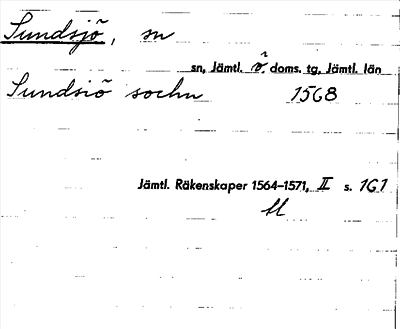 Sundsjö, sn
sn, Jämtl. ö. doms. tg, Jämtl. län
Sundsiö sochn 1568
Jämtl. Räkenskaper 1564–1571, II s. 161